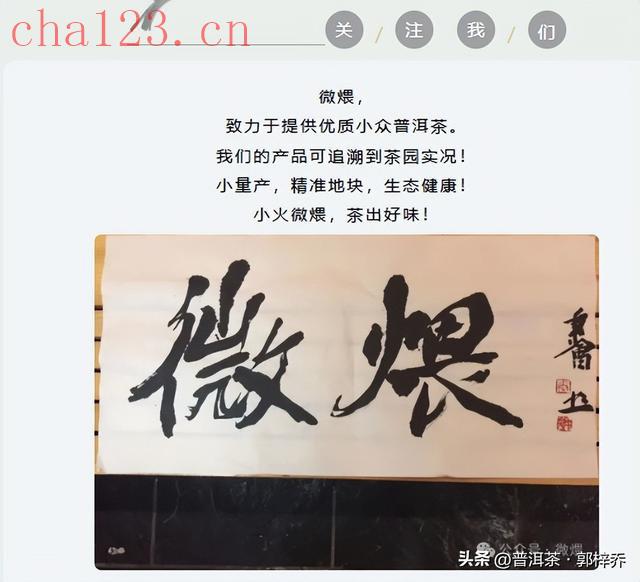 cha123.cn
关注我们
微煨，
致力于提供优质小众普洱茶。
我们的产品可追溯到茶园实况！
小量产，精准地块，生态健康！
小火微煨，茶出好味！
微煨
公众号 · 微煨
头条 @普洱茶 · 郭梓乔